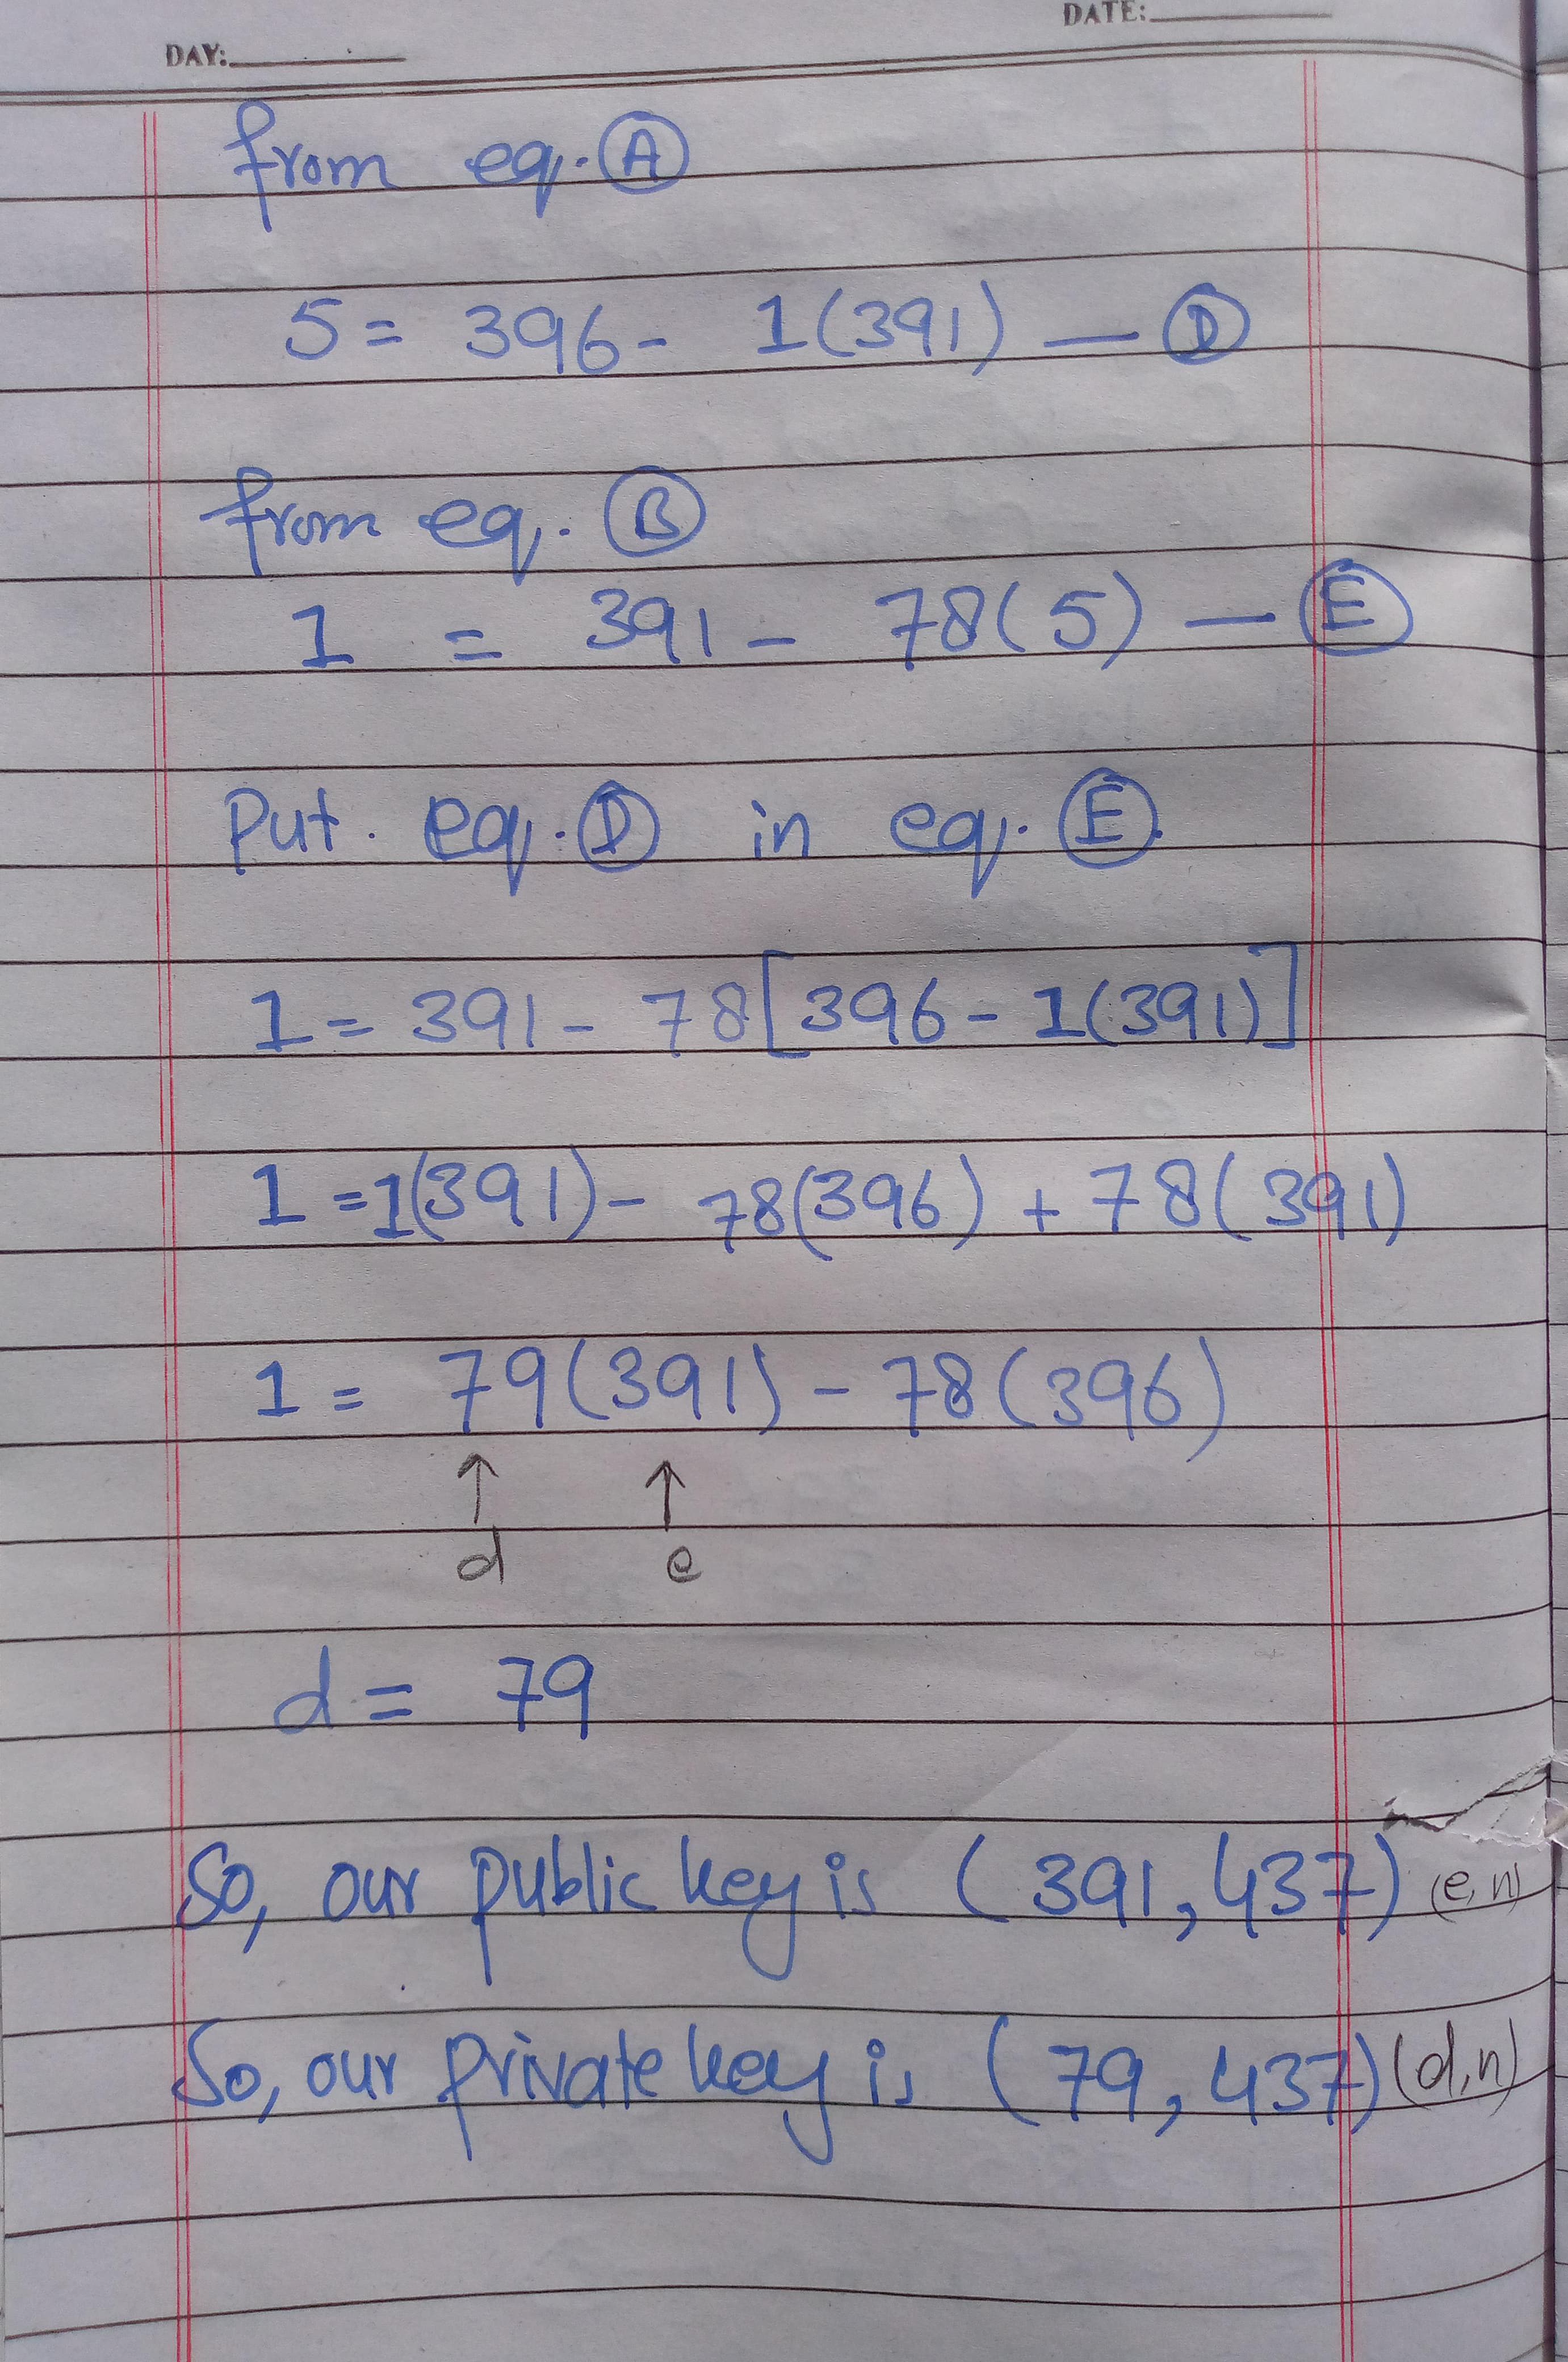 DATE:
DAY:
from eq. Ⓐ
5 = 396 - 1(391) — Ⓓ
from eq. Ⓑ
1 = 391 - 78(5) — Ⓔ
Put. eq. Ⓓ in eq. Ⓔ.
1 = 391 - 78[396 - 1(391)]
1 = 1(391) - 78(396) + 78(391)
1 = 79(391) - 78(396)
↑ ↑
d e
d = 79
So, our public key is (391, 437) (e, n)
So, our private key is (79, 437) (d, n)